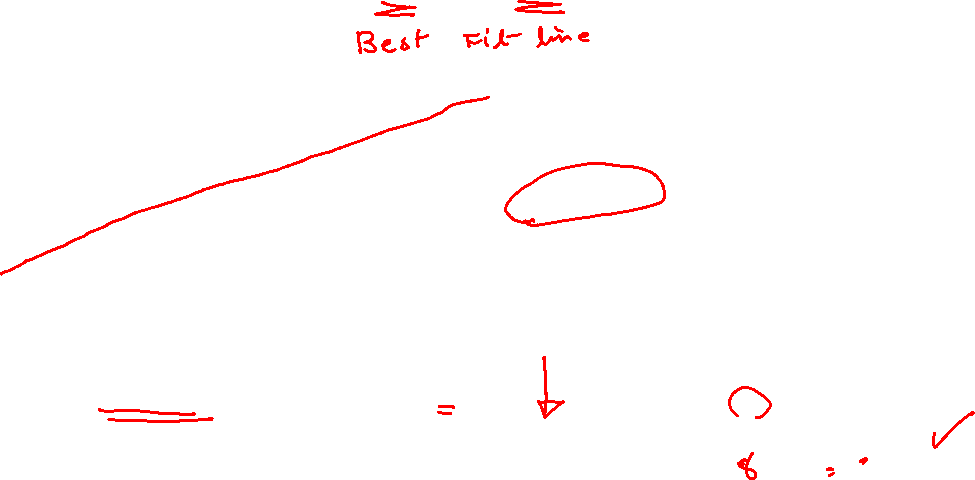 Best Fit line
=
8 = .